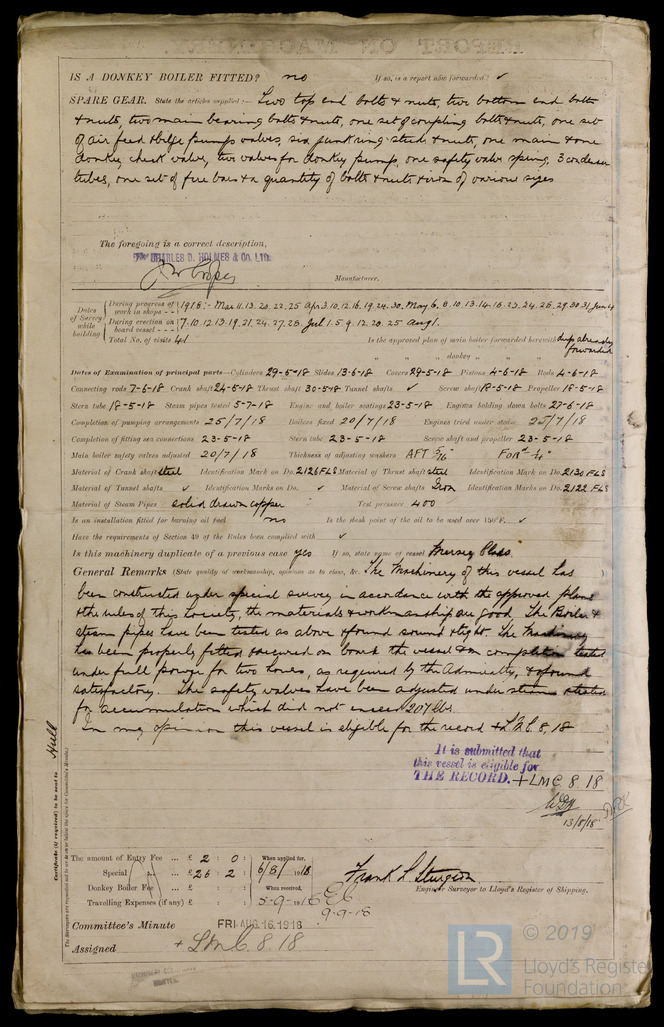 IS A DONKEY BOILER FITTED? no If so, is a report now forwarded? ✓
SPARE GEAR. State the articles supplied:— Two top end bolts & nuts, two bottom end bolts
& nuts, two main bearing bolts & nuts, one set of coupling bolts & nuts, one set
of air feed & bilge pump valves, six junk ring studs & nuts, one main & one
donkey check valve, two valves for donkey pump, one safety valve spring, 3 condenser
tubes, one set of fire bars & a quantity of bolts & nuts & iron of various sizes
The foregoing is a correct description,
CHARLES D. HOLMES & Co. LTD.
Manufacturer.
Dates of Survey while building
During progress of work in shops - - 1918:- Mar 11. 13. 20. 22. 25 Apr 3. 10. 12. 16. 19. 24. 30. May 6. 8. 10. 13. 14. 16. 23. 24. 26. 29. 30. 31. June 4
During erection on board vessel - - - 7. 10. 12. 13. 19. 21. 24. 27. 28. Jul 1. 5. 9. 12. 20. 25 Aug 1.
Total No. of visits 41 Is the approved plan of main boiler forwarded herewith already forwarded
" " " donkey " " "
Dates of Examination of principal parts—Cylinders 29-5-18 Slides 13-6-18 Covers 29-5-18 Pistons 4-6-18 Rods 4-6-18
Connecting rods 7-6-18 Crank shaft 24-5-18 Thrust shaft 30-5-18 Tunnel shafts ✓ Screw shaft 18-5-18 Propeller 18-5-18
Stern tube 18-5-18 Steam pipes tested 5-7-18 Engine and boiler seatings 23-5-18 Engines holding down bolts 27-6-18
Completion of pumping arrangements 25/7/18 Boilers fixed 20/7/18 Engines tried under steam 25/7/18
Completion of fitting sea connections 23-5-18 Stern tube 23-5-18 Screw shaft and propeller 23-5-18
Main boiler safety valves adjusted 20/7/18 Thickness of adjusting washers AFT 5/16" FORd
Material of Crank shaft steel Identification Mark on Do. 2126 FLS Material of Thrust shaft steel Identification Mark on Do. 2130 FLS
Material of Tunnel shafts ✓ Identification Marks on Do. ✓ Material of Screw shafts Iron Identification Marks on Do. 2122 FLS
Material of Steam Pipes solid drawn copper Test pressure 400
Is an installation fitted for burning oil fuel no Is the flash point of the oil to be used over 150°F. ✓
Have the requirements of Section 49 of the Rules been complied with ✓
Is this machinery duplicate of a previous case yes If so, state name of vessel Mersey Class.
General Remarks (State quality of workmanship, opinions as to class, &c. The Machinery of this vessel has
been constructed under special survey in accordance with the approved plans
& the rules of this Society, the materials & workmanship are good. The Boiler &
steam pipes have been tested as above & found sound & tight. The Machinery
has been properly fitted & secured on board the vessel & on completion tested
under full power for two hours, as required by the Admiralty, & found
satisfactory. The safety valves have been adjusted under steam & tested
for accumulation which did not exceed 207 lbs.
In my opinion this vessel is eligible for the record + LMC. 8. 18
It is submitted that
this vessel is eligible for
THE RECORD. + LMC 8. 18
13/8/18
Certificate (if required) to be sent to Hull
The amount of Entry Fee ... £ 2 : 0 : When applied for,
Special ... £ 26 : 2 : 6/8/1918
Donkey Boiler Fee ... £ : : When received,
Travelling Expenses (if any) £ : : 5-9-1918
9-9-18
Frank L. Sturgeon
Engineer Surveyor to Lloyd's Register of Shipping.
Committee's Minute FRI. AUG. 16. 1918
Assigned + LMC. 8. 18
© 2019
LR
Lloyd's Register
Foundation